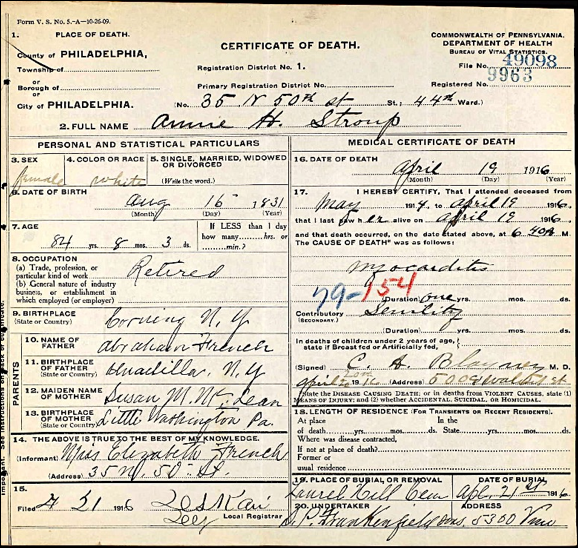 Form V. S. No. 5.-A-10-26-09.
1. PLACE OF DEATH.
County of PHILADELPHIA,
Township of
or
Borough of
or
City of PHILADELPHIA.
CERTIFICATE OF DEATH.
Registration District No. 1.
Primary Registration District No.
COMMONWEALTH OF PENNSYLVANIA.
DEPARTMENT OF HEALTH
BUREAU OF VITAL STATISTICS.
File No. 49098
Registered No. 9963
(No. 35 N 50th st St.; 44th Ward.)
2. FULL NAME Annie H. Stroup
PERSONAL AND STATISTICAL PARTICULARS
3. SEX
female
4. COLOR OR RACE
white
5. SINGLE, MARRIED, WIDOWED
OR DIVORCED
(Write the word.)
6. DATE OF BIRTH
Aug 16 1831
(Month) (Day) (Year)
7. AGE
84 yrs. 8 mos. 3 ds.
If LESS than 1 day
how many hrs. or
min.?
8. OCCUPATION
(a) Trade, profession, or
particular kind of work
Retired
(b) General nature of industry
business, or establishment in
which employed (or employer)
9. BIRTHPLACE
(State or Country)
Corning N. Y.
PARENTS
10. NAME OF
FATHER
Abraham French
11. BIRTHPLACE
OF FATHER
(State or Country)
Unadilla, N. Y
12. MAIDEN NAME
OF MOTHER
Susan M. Mc Lean
13. BIRTHPLACE
OF MOTHER
(State or Country)
Little Washington Pa.
14. THE ABOVE IS TRUE TO THE BEST OF MY KNOWLEDGE.
(Informant) Miss Elizabeth French
(Address) 35 N. 50th St.
15.
Filed 4 21 1916
Local Registrar
MEDICAL CERTIFICATE OF DEATH
16. DATE OF DEATH
April 19 1916
(Month) (Day) (Year)
17. I HEREBY CERTIFY, That I attended deceased from
May 1914, to April 19 1916,
that I last saw h er alive on April 19 1916,
and that death occurred, on the date stated above, at 6.40 A M.
The CAUSE OF DEATH was as follows:
Myocarditis
79-154
(Duration) one yrs. mos. ds.
Contributory Senility
(SECONDARY.)
(Duration) yrs. mos. ds.
In deaths of children under 2 years of age,
state if Breast fed or Artificially fed,
(Signed) C. A. M. D.
April 20th 1916 (Address) 5009 Walnut st.
State the DISEASE CAUSING DEATH; or in deaths from VIOLENT CAUSES, state (1)
MEANS OF INJURY; and (2) whether ACCIDENTAL, SUICIDAL, or HOMICIDAL.
18. LENGTH OF RESIDENCE (FOR TRANSIENTS OR RECENT RESIDENTS).
At place In the
of death yrs. mos. ds. State yrs. mos. ds.
Where was disease contracted,
If not at place of death?
Former or
usual residence
19. PLACE OF BURIAL OR REMOVAL
Laurel Hill Cem
DATE OF BURIAL
Apl. 21st 1916
20. UNDERTAKER
Frankenfield Sons, 5300 Vine